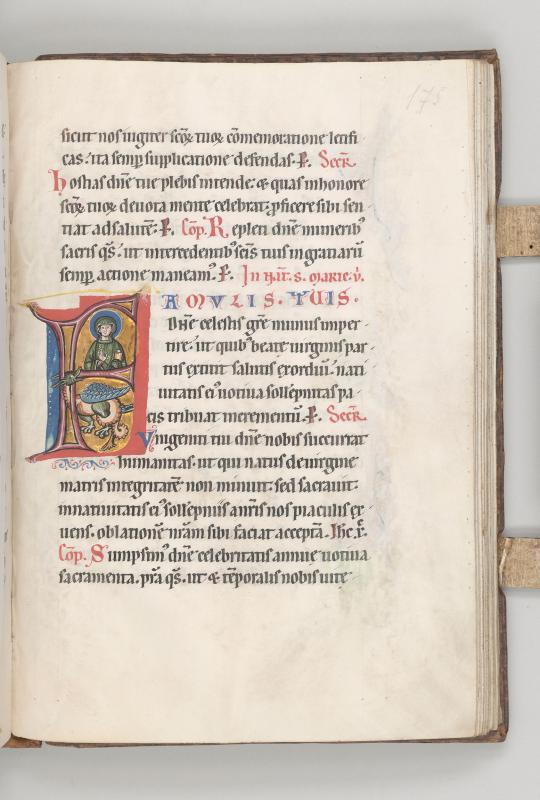 175
sicut nos iugiter scõꝝ tuoꝝ cõmemoratione letifi
cas. ita semp supplicatione defendas. P. Secꝛ.
hostias dñe tue plebis intende: & quas in honore
scõꝝ tuoꝝ deuota mente celebrat; pficere sibi sen
tiat ad salutẽ. P. Cõp. Repleti dñe munerib'
sacris qs̃. ut intercedentib' scis tuis in gratiarũ
semp actione maneam'. P. In nat̃. s. marie. v.
FAMVLIS. TVIS.
Dñe celestis grẽ munus imper
tire. ut quib' beate uirginis par
tus extitit salutis exordiũ. nati
uitatis ei' uotiua sollẽpnitas pa
cis tribuat incrementũ. P. Secꝛ.
Vnigeniti tui dñe nobis succurrat
humanitas. ut qui natus de uirgine
matris integritatẽ non minuit. sed sacrauit.
in natiuitatis ei' sollẽpniis a nr̃is nos piaculis ex
uens. oblationẽ nr̃am sibi faciat acceptã. Ihc xp̃c.
Cõp. Sumpsim' dñe celebritatis annue uotiua
sacramenta. pr̃a qs̃. ut & tẽporalis nobis uite